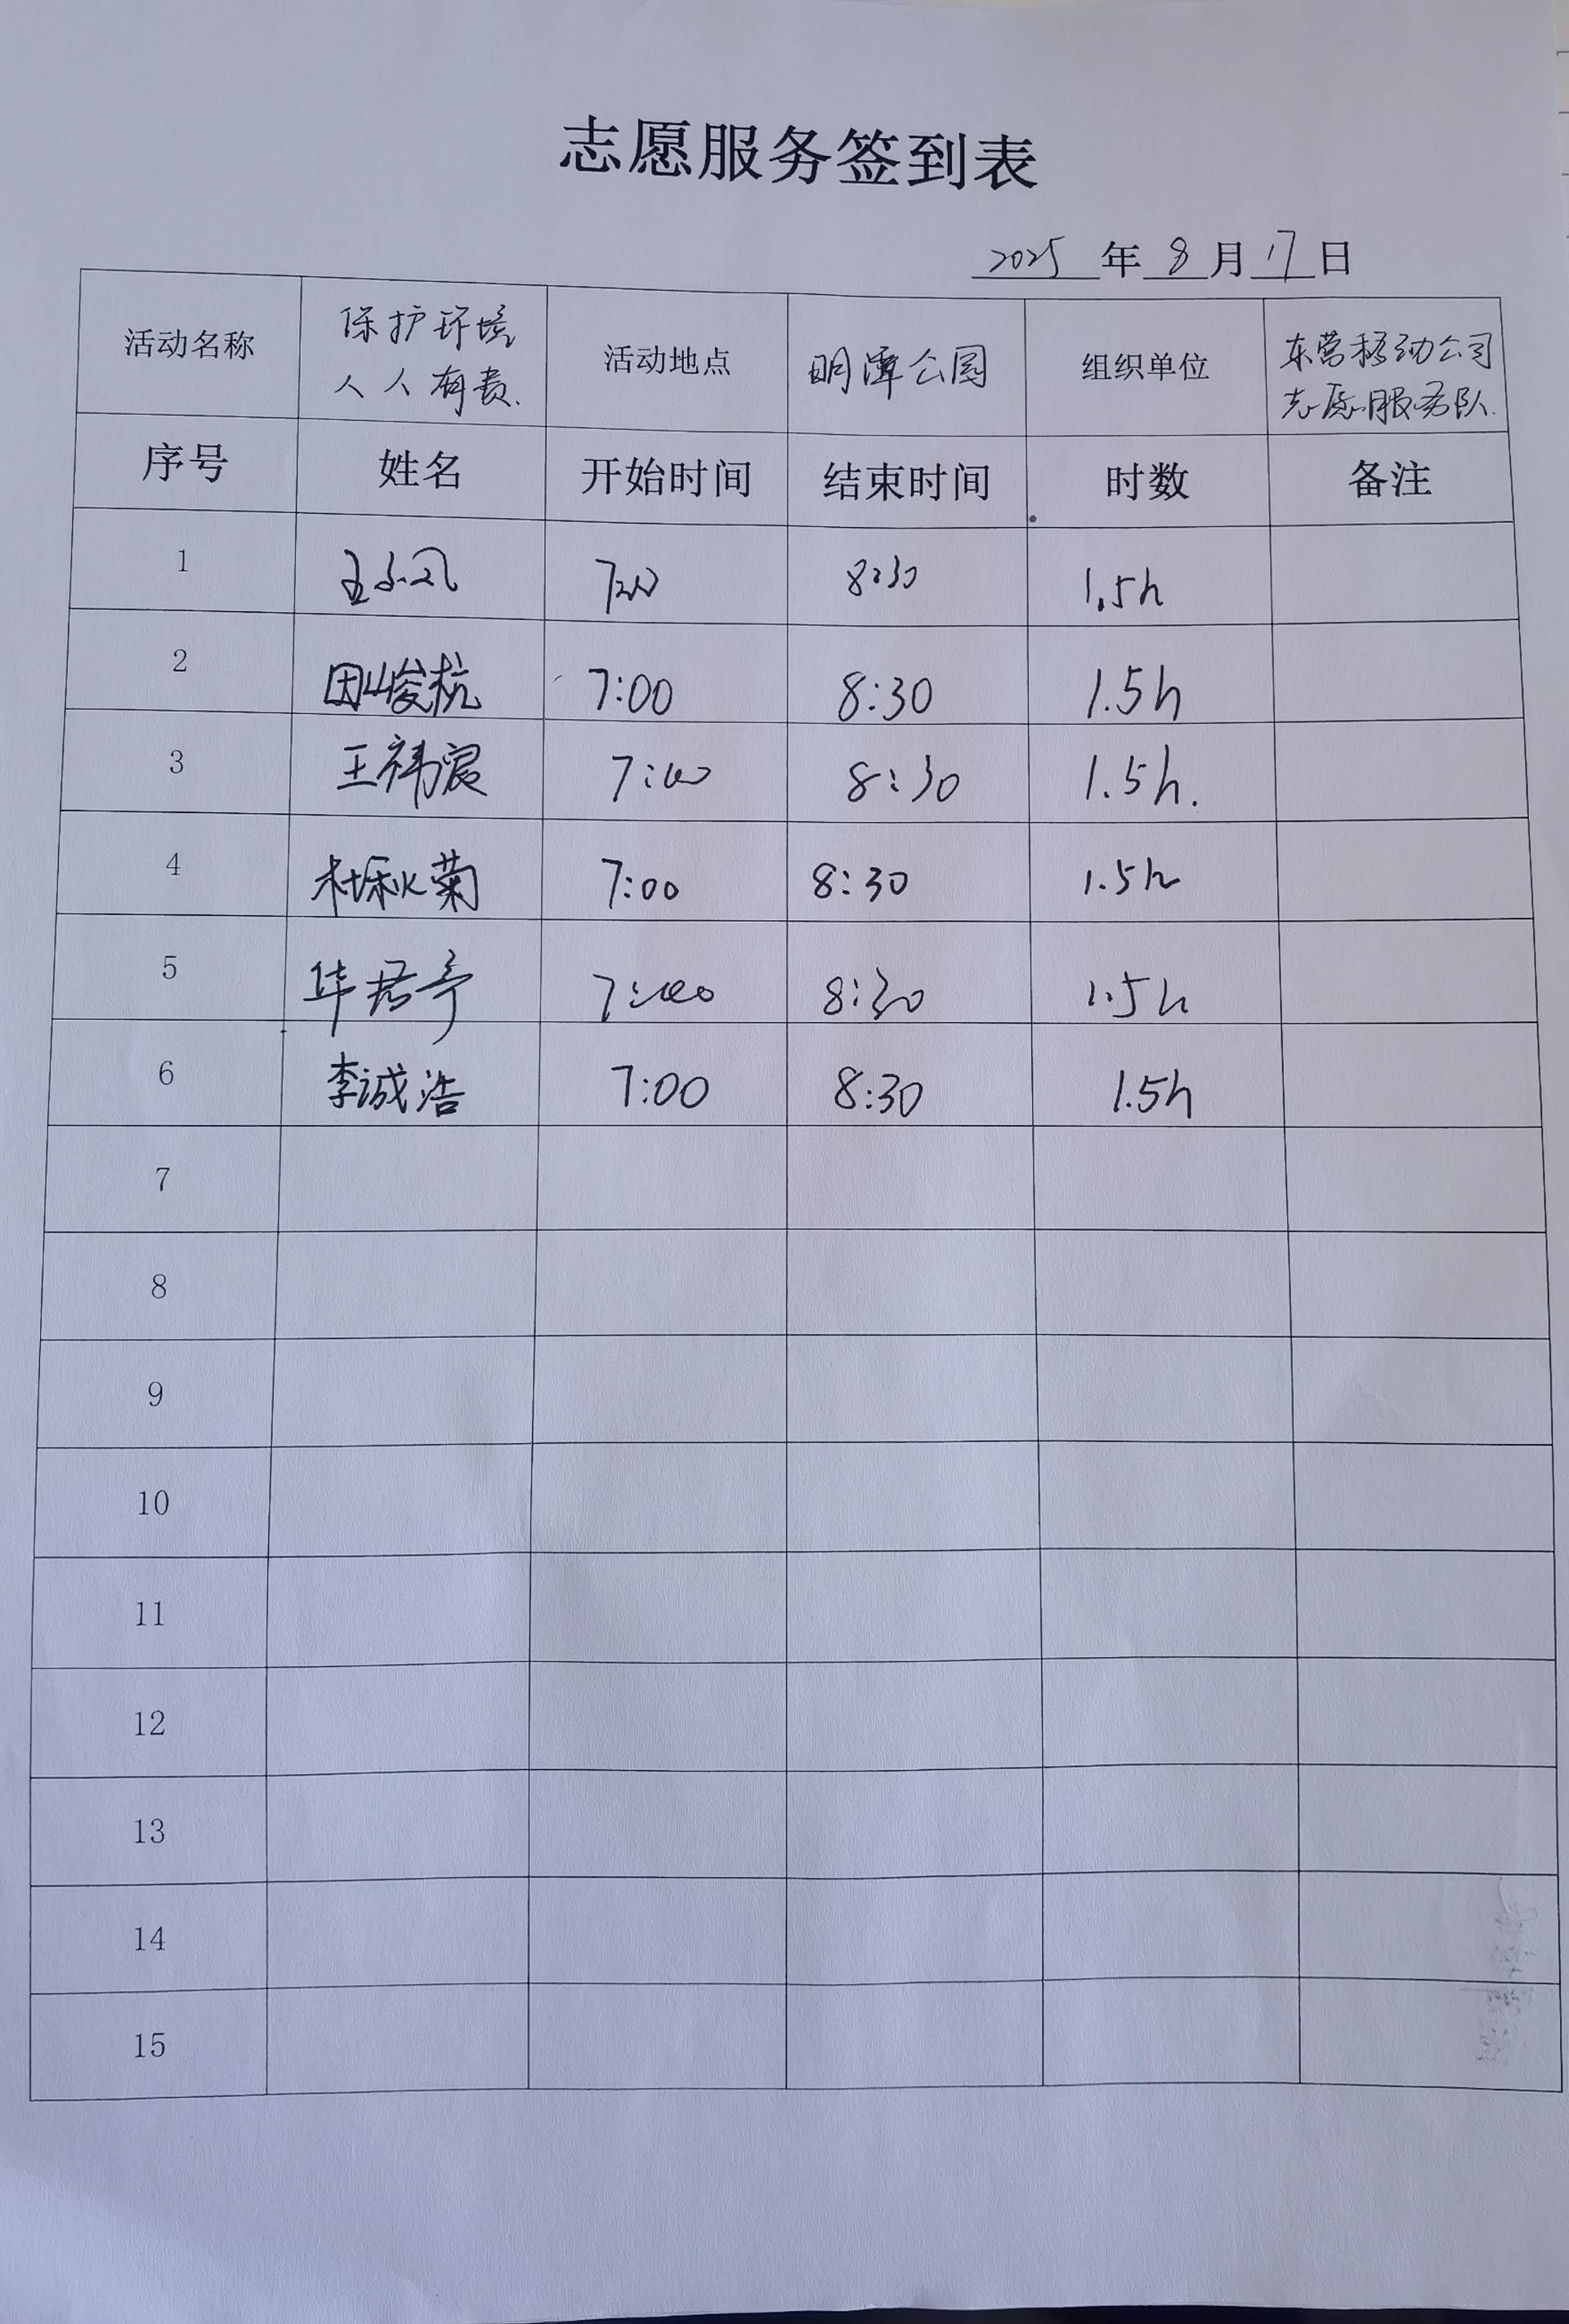 志愿服务签到表
2025年8月17日
活动名称 保护环境 人人有责. 活动地点 明潭公园 组织单位 东营移动公司 志愿服务队.
序号 姓名 开始时间 结束时间 时数 备注
1 7:00 8:30 1.5h
2 田峻杭 7:00 8:30 1.5h
3 王祎宸 7:00 8:30 1.5h.
4 杜秋菊 7:00 8:30 1.5h
5 7:00 8:30 1.5h
6 李诚浩 7:00 8:30 1.5h
7
8
9
10
11
12
13
14
15